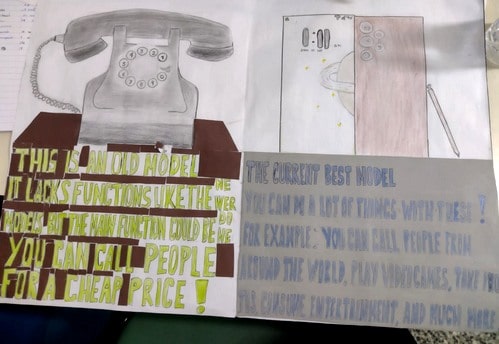 THIS IS AN OLD MODEL
IT LACKS FUNCTIONS LIKE THE NEWER
MODELS BUT THE MAIN FUNCTION COULD BE DONE
YOU CAN CALL PEOPLE
FOR A CHEAP PRICE !
THE CURRENT BEST MODEL
YOU CAN DO A LOT OF THINGS WITH THESE !
FOR EXAMPLE: YOU CAN CALL PEOPLE FROM
AROUND THE WORLD, PLAY VIDEOGAMES,
CONSUME ENTERTAINMENT, AND MUCH MORE